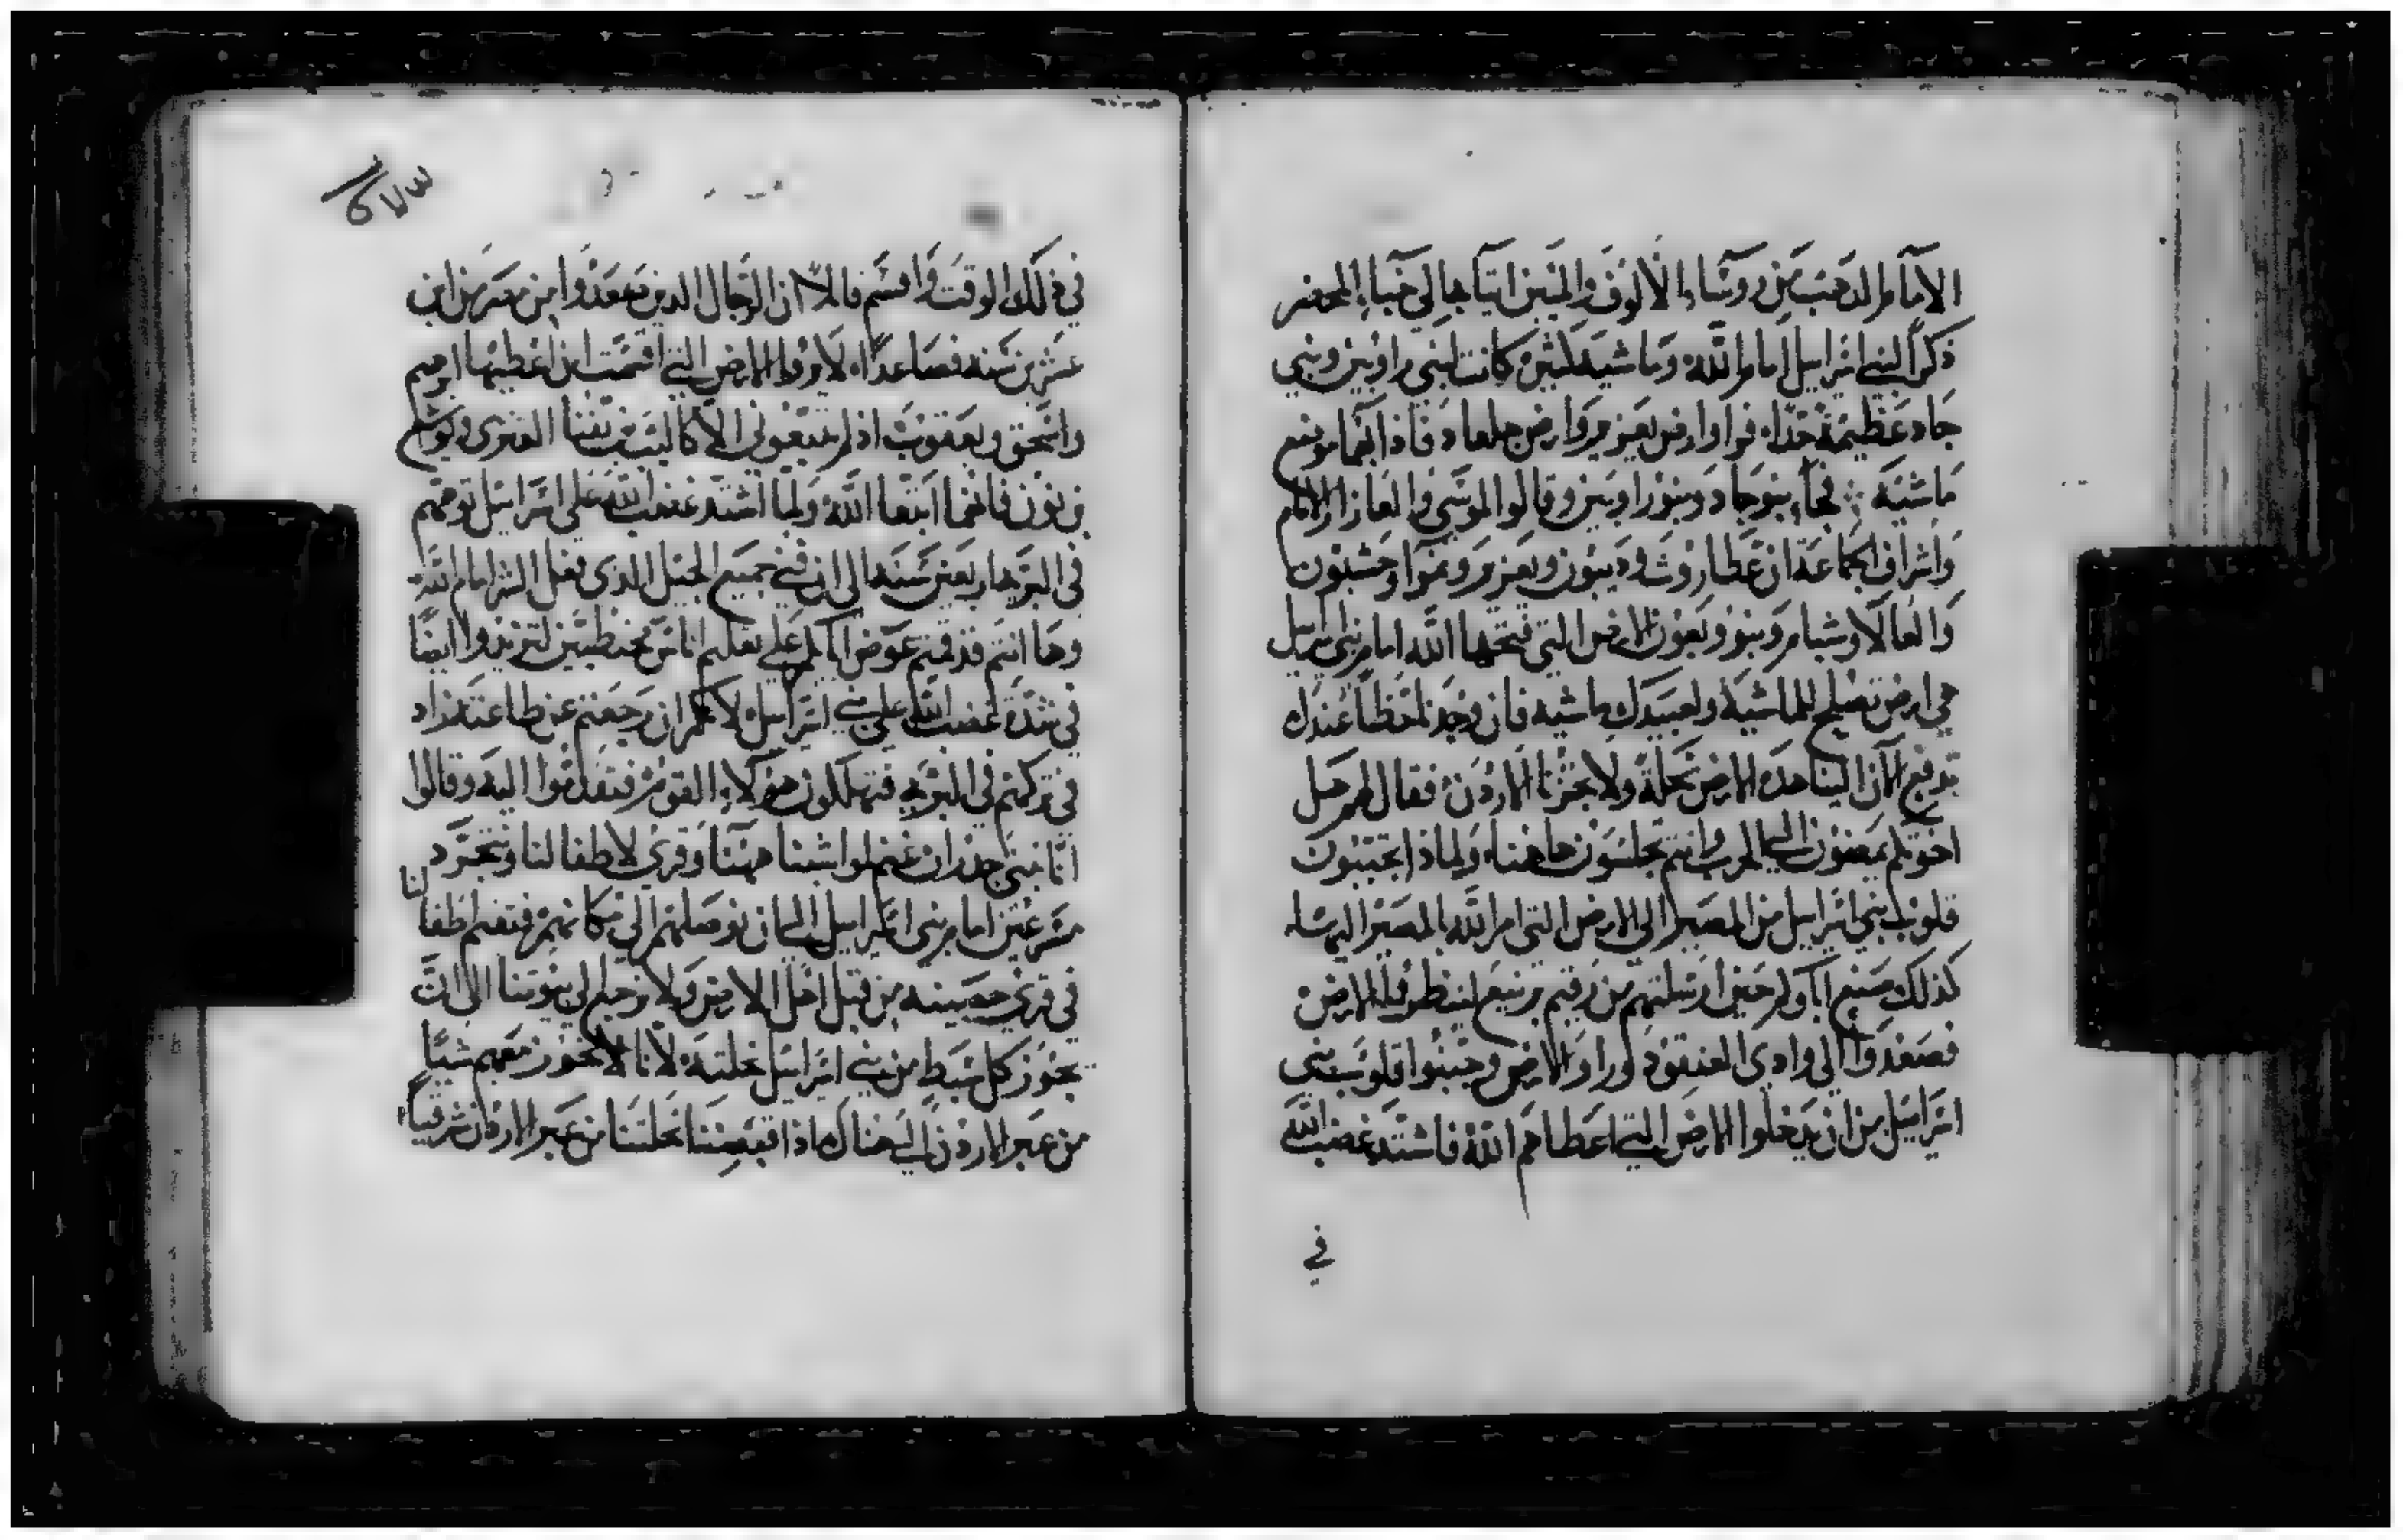 الامام الذهب من روساء الالوف والميين اتيا بها الى خباء المحضر
ذكرا لبني اسراييل امام الله وماشيه كثيره كانت لبني راوبين وبني
جاد عظيمة جدا فراوا ارض يعزير وارض جلعاد فاذا انهما موضع
ماشيه فجاء بنو جاد وبنو راوبين وقالوا لموسى والعازار الامام
واشراف الجماعة ان عطاروث وديبون ويعزير ونمرا وحشبون
والعالا وشبام ونبو وبعون الارض التي فتحها الله امام بني اسراييل
هي ارض تصلح للماشية ولعبيدك ماشيه فان وجدنا حظا عندك
تدفع الان الينا هذه الارض نحلة ولا تجزنا الاردن فقال لهم هل
اخوتكم يمضون الى الحرب وانتم تجلسون هاهنا ولماذا تجنبون
قلوب بني اسراييل من المصير الى الارض التي امر الله بالمصير اليها
كذلك صنع اباوكم حين ارسلتهم من رقيم برنيع لينظروا الارض
فصعدوا الى وادي العنقود وراوا الارض وجنبوا قلوب بني
اسراييل من ان يدخلوا الارض التي اعطاهم الله فاشتد غضب الله
في
في ذلك الوقت واقسم قايلا ان الرجال الذين صعدوا من مصر من ابن
عشرين سنه فصاعدا لا يروا الارض التي اقسمت ان اعطيها ابرهيم
واسحق ويعقوب اذ لم يتبعوني الا كالب بن يفنا القنزي ويوشع
بن نون فانهما اتبعا الله ولما اشتد غضب الله على اسراييل توههم
في البريه اربعين سنه الى ان فني جميع الجيل الذي فعل الشر امام الله
وها انتم قد قمتم عوض ابايكم على تعليم اناس مخطيين لتزيدوا ايضا
في شدة غضب الله على بني اسراييل لانكم ان رجعتم عن طاعته زاد
في تركهم في البريه فتهلكون هولاء القوم فتقدموا اليه وقالوا
انما نبني جدران غنم لمواشينا هاهنا وقرى لاطفالنا ونتجرد
مسرعين امام بني اسراييل الى ان نوصلهم الى مكانهم فتقيم اطفالنا
في قرى حصينه من قبل اهل الارض ولا نرجع الى بيوتنا الى ان
يحوز كل سبط من بني اسراييل نحلته لانا لا نحوز معهم شيا
من عبر الاردن الى هناك اذا قبضنا نحلتنا من عبر الاردن شرقيا